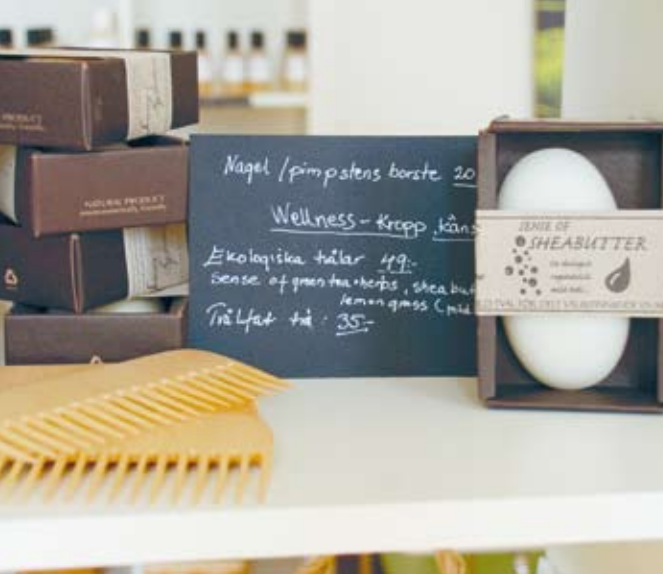 NATURAL PRODUCT
Nagel / pimpstens borste 20
Wellness - Kropp, käns
Ekologiska tvålar 49:-
Sense of green tea + herbs, shea but
lemon grass (
Tvålfat trä : 35:-
SENSE OF
SHEABUTTER